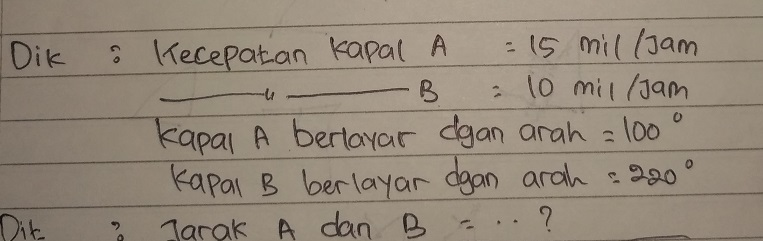 Dik : Kecepatan kapal A = 15 mil/Jam
——— " ——— B = 10 mil/Jam
kapal A berlayar dgan arah = 100°
Kapal B berlayar dgan arah = 220°
Dit : Jarak A dan B = ... ?